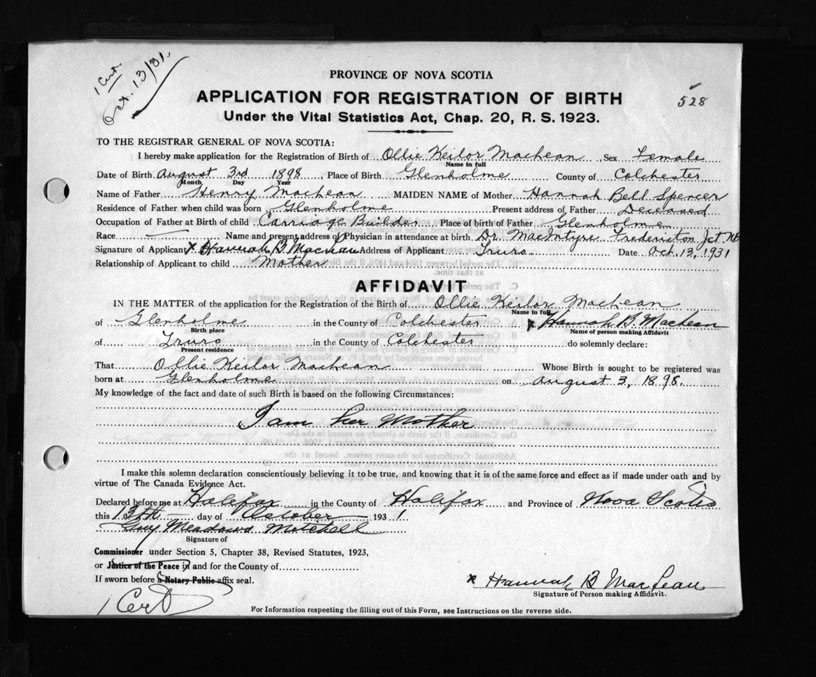 1 Cert
Oct. 13/31.
PROVINCE OF NOVA SCOTIA
APPLICATION FOR REGISTRATION OF BIRTH
528
Under the Vital Statistics Act, Chap. 20, R. S. 1923.
TO THE REGISTRAR GENERAL OF NOVA SCOTIA:
I hereby make application for the Registration of Birth of Ollie Keilor MacLean Sex Female
Name in full
Date of Birth August 3rd 1898 Place of Birth Glenholme County of Colchester
Month Day Year
Name of Father Henry MacLean MAIDEN NAME of Mother Hannah Bell Spencer
Residence of Father when child was born Glenholme Present address of Father Deceased
Occupation of Father at Birth of child Carriage Builder Place of birth of Father Glenholme
Race Name and present address of Physician in attendance at birth Dr. MacIntyre Fredericton Jct NB
Signature of Applicant x Hannah B MacLean Address of Applicant Truro Date Oct. 13, 1931
Relationship of Applicant to child Mother
AFFIDAVIT
IN THE MATTER of the application for the Registration of the Birth of Ollie Keilor MacLean
Name in full
of Glenholme in the County of Colchester x Hannah B. MacLean
Birth place Name of person making Affidavit
of Truro in the County of Colchester do solemnly declare:
Present residence
That Ollie Keilor MacLean Whose Birth is sought to be registered was
born at Glenholme on August 3, 1898.
My knowledge of the fact and date of such Birth is based on the following Circumstances:
I am her Mother
I make this solemn declaration conscientiously believing it to be true, and knowing that it is of the same force and effect as if made under oath and by
virtue of The Canada Evidence Act.
Declared before me at Halifax in the County of Halifax and Province of Nova Scotia
this 13th day of October 1931
Guy Meadows Mitchell
Signature of
Commissioner under Section 5, Chapter 38, Revised Statutes, 1923,
or Justice of the Peace in and for the County of
If sworn before a Notary Public affix seal.
x Hannah B MacLean
Signature of Person making Affidavit.
1 Cert
For Information respecting the filling out of this Form, see Instructions on the reverse side.